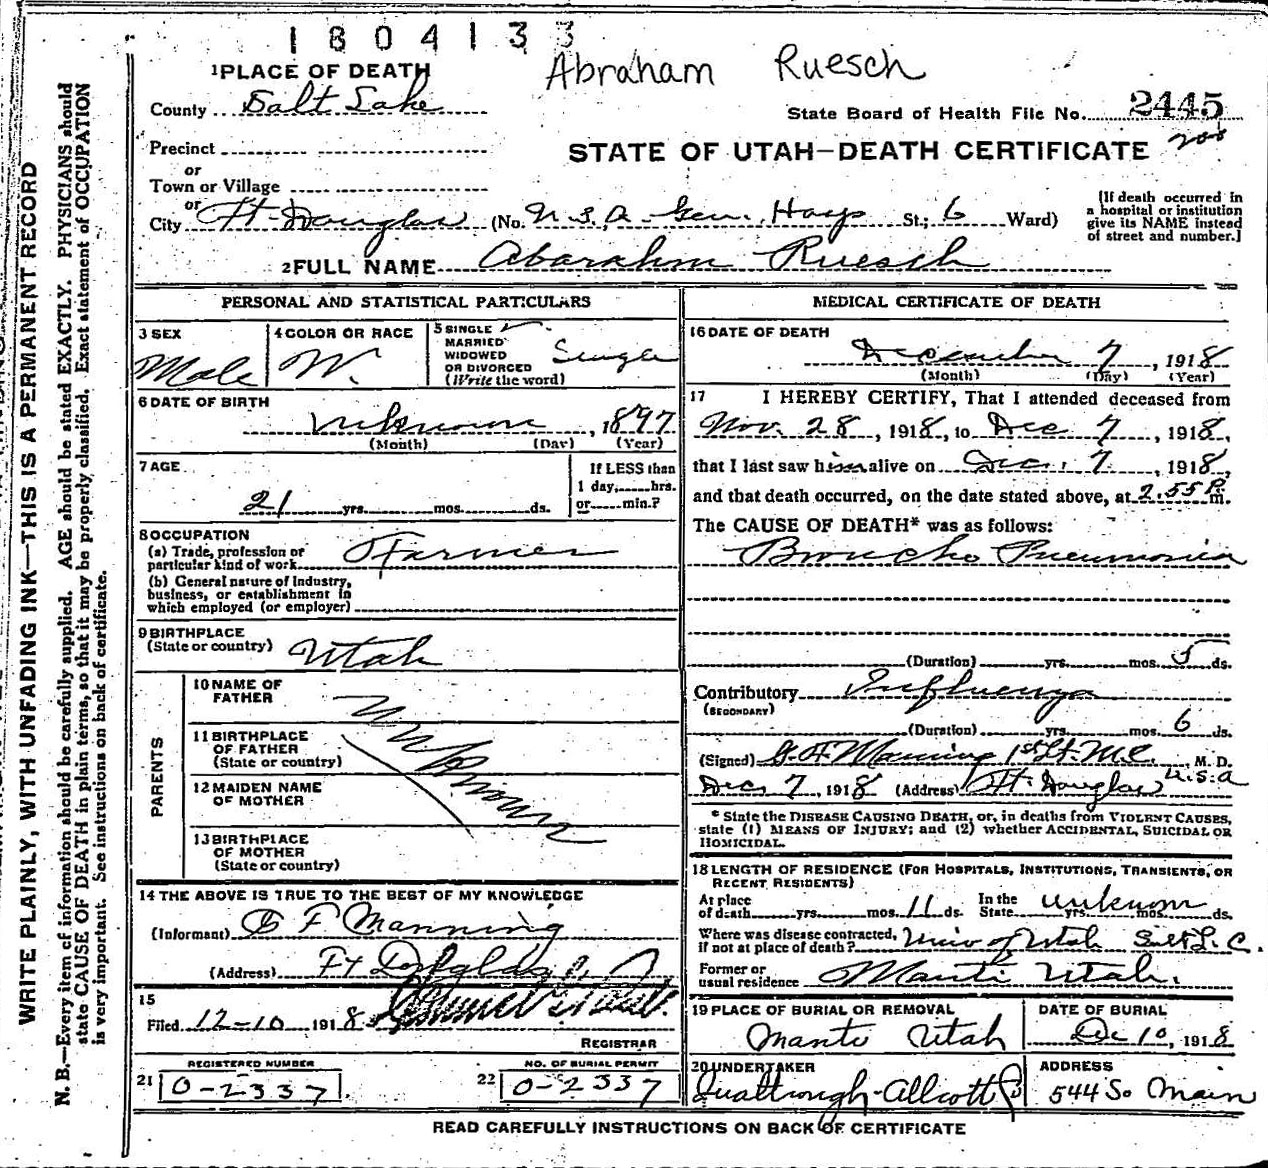 1804133
Abraham Ruesch
1 PLACE OF DEATH
County Salt Lake
State Board of Health File No. 2445
Precinct
or
Town or Village
or
City Ft. Douglas (No. U.S.A. Gen. Hosp St.; 6 Ward)
STATE OF UTAH—DEATH CERTIFICATE
[If death occurred in
a hospital or institution
give its NAME instead
of street and number.]
2 FULL NAME Abarahm Ruesch
PERSONAL AND STATISTICAL PARTICULARS
3 SEX
Male
4 COLOR OR RACE
W.
5 SINGLE
MARRIED
WIDOWED
OR DIVORCED
(Write the word)
Single
6 DATE OF BIRTH
unknown, 1897
(Month) (Day) (Year)
7 AGE
21 yrs. mos. ds.
If LESS than
1 day, hrs.
or min.?
8 OCCUPATION
(a) Trade, profession or
particular kind of work Farmer
(b) General nature of Industry,
business, or establishment in
which employed (or employer)
9 BIRTHPLACE
(State or country) Utah
PARENTS
10 NAME OF
FATHER
11 BIRTHPLACE
OF FATHER
(State or country)
12 MAIDEN NAME
OF MOTHER
13 BIRTHPLACE
OF MOTHER
(State or country)
Unknown
14 THE ABOVE IS TRUE TO THE BEST OF MY KNOWLEDGE
(Informant) G F Manning
(Address) Ft Douglas
15
Filed 12-10 1918
REGISTRAR
REGISTERED NUMBER
21 0-2337
NO. OF BURIAL PERMIT
22 0-2337
MEDICAL CERTIFICATE OF DEATH
16 DATE OF DEATH
December 7, 1918
(Month) (Day) (Year)
17 I HEREBY CERTIFY, That I attended deceased from
Nov. 28, 1918, to Dec 7, 1918,
that I last saw him alive on Dec. 7, 1918,
and that death occurred, on the date stated above, at 2.55 P m.
The CAUSE OF DEATH* was as follows:
Broncho Pneumonia
(Duration) yrs. mos. 5 ds.
Contributory Influenza
(SECONDARY)
(Duration) yrs. mos. 6 ds.
(Signed) G. F. Manning 1st Lt. M.C., M. D.
Dec 7, 1918 (Address) Ft. Douglas U.S.A
* State the DISEASE CAUSING DEATH, or, in deaths from VIOLENT CAUSES,
state (1) MEANS OF INJURY; and (2) whether ACCIDENTAL, SUICIDAL OR
HOMICIDAL.
18 LENGTH OF RESIDENCE (FOR HOSPITALS, INSTITUTIONS, TRANSIENTS, OR
RECENT RESIDENTS)
At place
of death yrs. mos. 11 ds.
In the
State unknown yrs. mos. ds.
Where was disease contracted,
if not at place of death? Univ of Utah Salt L. C.
Former or
usual residence Manti Utah.
19 PLACE OF BURIAL OR REMOVAL
Manti Utah
DATE OF BURIAL
Dec 10, 1918
20 UNDERTAKER
Qualtrough-Allcott Co
ADDRESS
544 So Main
READ CAREFULLY INSTRUCTIONS ON BACK OF CERTIFICATE
WRITE PLAINLY, WITH UNFADING INK—THIS IS A PERMANENT RECORD
N. B.—Every item of information should be carefully supplied. AGE should be stated EXACTLY. PHYSICIANS should
state CAUSE OF DEATH in plain terms, so that it may be properly classified. Exact statement of OCCUPATION
is very important. See instructions on back of certificate.